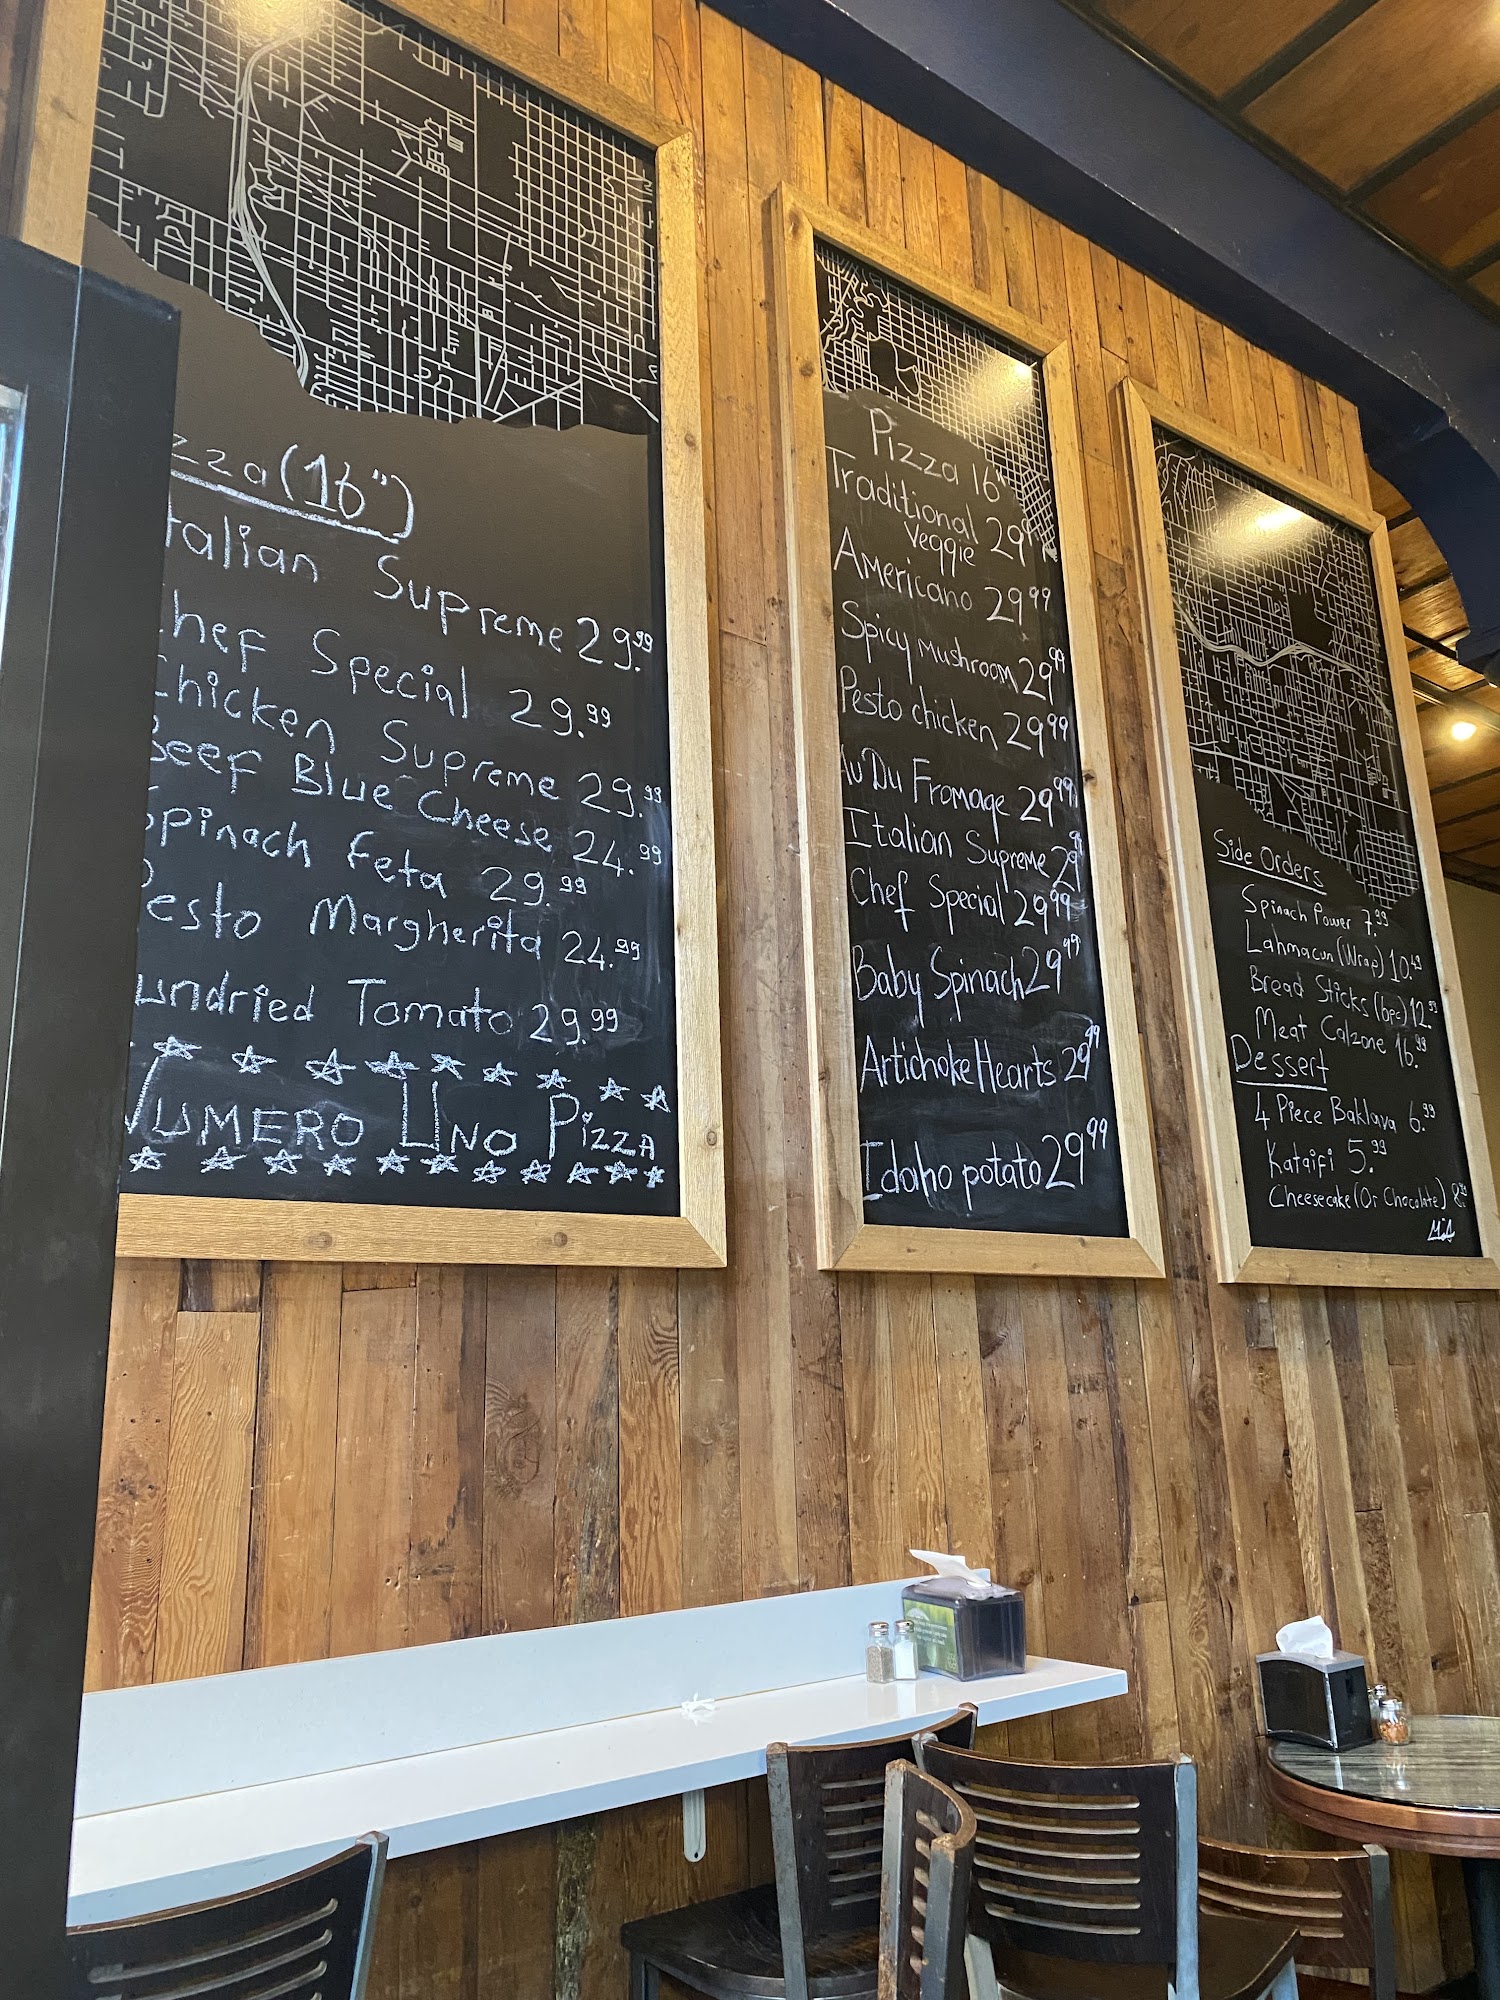 zza (16")
talian Supreme 29.99
hef Special 29.99
Chicken Supreme 29.99
Beef Blue Cheese 24.99
Spinach Feta 29.99
Pesto Margherita 24.99
undried Tomato 29.99
NUMERO UNO PIZZA
Pizza 16"
Traditional 29.99
Veggie
Americano 29.99
Spicy mushroom 29.99
Pesto chicken 29.99
Au Du Fromage 29.99
Italian Supreme 29.99
Chef Special 29.99
Baby Spinach 29.99
Artichoke Hearts 29.99
Idaho potato 29.99
Side Orders
Spinach Power 7.99
Lahmacun (Wrap) 10.49
Bread Sticks (6pc) 12.99
Meat Calzone 16.99
Dessert
4 Piece Baklava 6.99
Kataifi 5.99
Cheesecake (Or Chocolate)